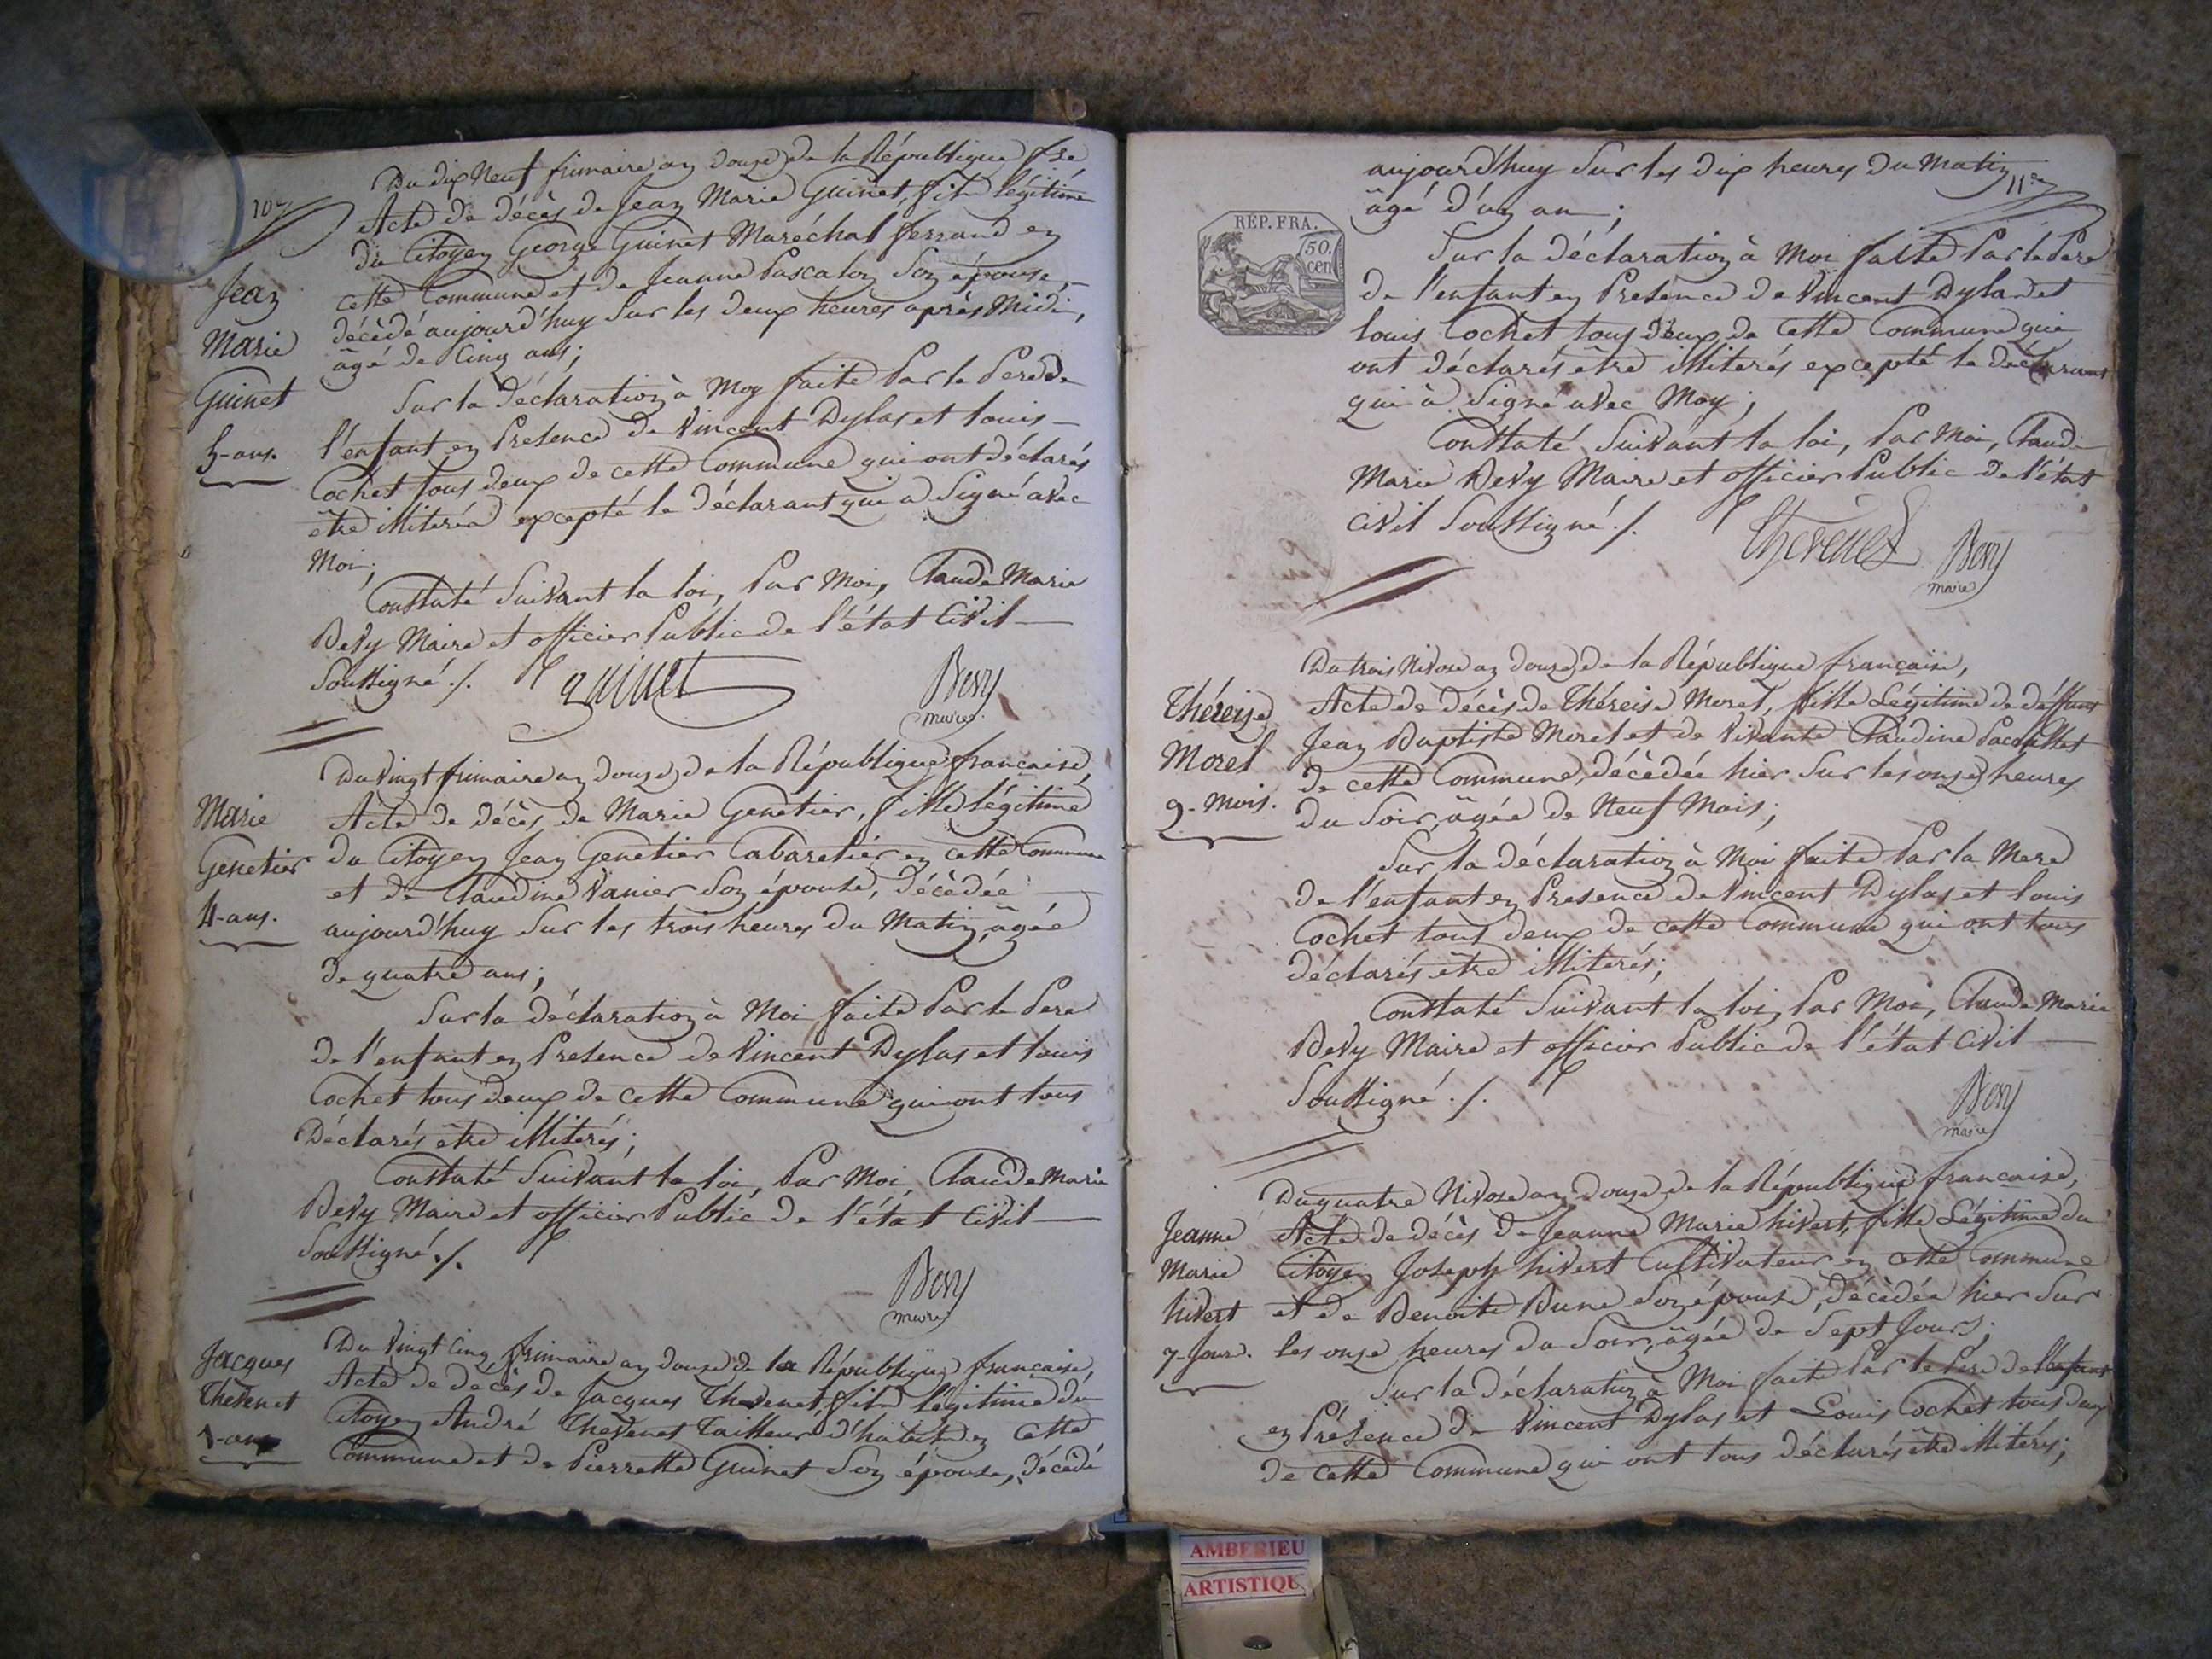 10e
Du dix Neuf frimaire an douze de la République fse
Acte de décès de Jean Marie Guinet, fils légitime
du Citoyen George Guinet Maréchal ferrand en
cette Commune et de Jeanne Pascalon Son épouse,
décèdé aujourd'huy Sur les deux heures après Midi,
âgé de Cinq ans;
Jean
Marie
Guinet
5-ans.
Sur la Déclaration à Moy faite Par le Pere de
l'enfant en Presence de Vincent Dylas et Louis
Cochet tous deux de cette Commune qui ont déclarés
être illiterés excepté le déclarant qui a Signé avec
Moi;
Constaté Suivant la loi, Par Moi, Claude Marie
Bevy Maire et officier Public de l'état Civil
Soussigné ./.
guinet
Bevy
maire
Du Vingt frimaire an douze de la République française,
Acte de décès de Marie Genetier, fille légitime
du Citoyen Jean Genetier Cabaretier en cette Commune
et de Claudine Vanier Son épouse, décèdée
aujourd'huy Sur les trois heures du Matin, âgée
de quatre ans;
Marie
Genetier
4-ans.
Sur la déclaration à Moi faite Par le Pere
de l'enfant en Presence de Vincent Dylas et Louis
Cochet tous deux de cette Commune qui ont tous
Déclarés être illiterés;
Constaté Suivant la loi, Par Moi, Claude Marie
Bevy Maire et officier Public de l'état Civil
Soussigné ./.
Bevy
maire
Du Vingt Cinq frimaire an douze de la République française,
Acte de decès de Jacques Thevenet, fils légitime du
Citoyen André Thevenet Tailleur d'habits en cette
Commune et de Pierrette Guinet Son épouse, Décèdé
Jacques
Thevenet
1-an
11e
aujourd'huy Sur les dix heures du Matin
âgé d'un an;
RÉP. FRA.
50.
cen
Sur la déclaration à Moi faite Par le Pere
de l'enfant en Presence de Vincent Dylas et
louis Cochet tous deux de cette Commune qui
ont déclarés être illiterés excepté le déclarant
qui à Signé avec Moy;
Constaté Suivant la loi, Par Moi, Claude
Marie Bevy Maire et officier Public de l'état
Civil Soussigné ./.
Thevenet
Bevy
maire
Du trois Nivose an douze de la République française,
Acte de décès de Théreise Morel, fille Légitime de déffunt
Jean Baptiste Morel et de Vivante Claudine
de cette Commune, décèdée hier Sur les onze heures
du Soir, âgée de Neuf Mois;
Théreise
Morel
9-Mois.
Sur la déclaration à Moi faite Par la Mere
de l'enfant en Presence de Vincent Dylas et Louis
Cochet tous deux de cette Commune qui ont tous
déclarés être illiterés;
Constaté Suivant la loi, Par Moi, Claude Marie
Bevy Maire et officier Public de l'état Civil
Soussigné ./.
Bevy
maire
Du quatre Nivose an douze de la République française,
Acte de décès de Jeanne Marie hivert, fille Légitime du
Citoyen Joseph hivert Cultivateur en cette Commune
et de Benoite Bune Son épouse, décèdée hier Sur
les onze heures du Soir, âgée de Sept Jours;
Jeanne
Marie
hivert
7-Jours.
Sur la déclaration à Moi faite Par le Pere de l'enfant
en Présence de Vincent Dylas et Louis Cochet tous deux
de cette Commune qui ont tous déclarés être illiterés;
AMBERIEU
ARTISTIQU